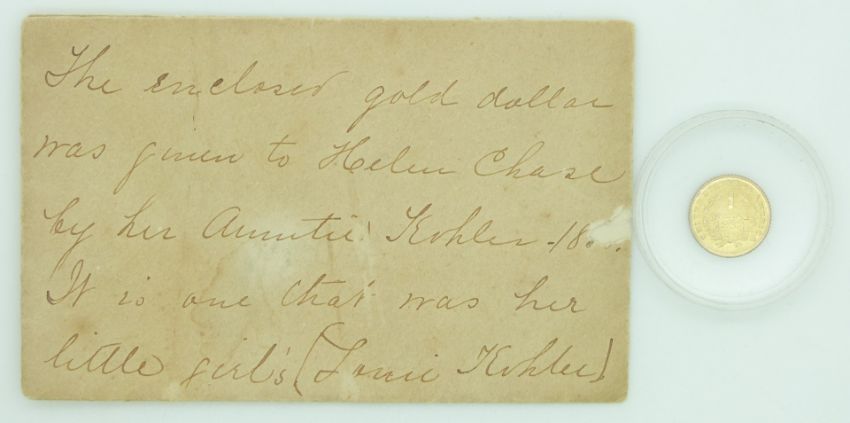 The enclosed gold dollar
was given to Helen Chase
by her Auntie Kohler 18
It is one that was her
little girl's (Louie Kohler)
1